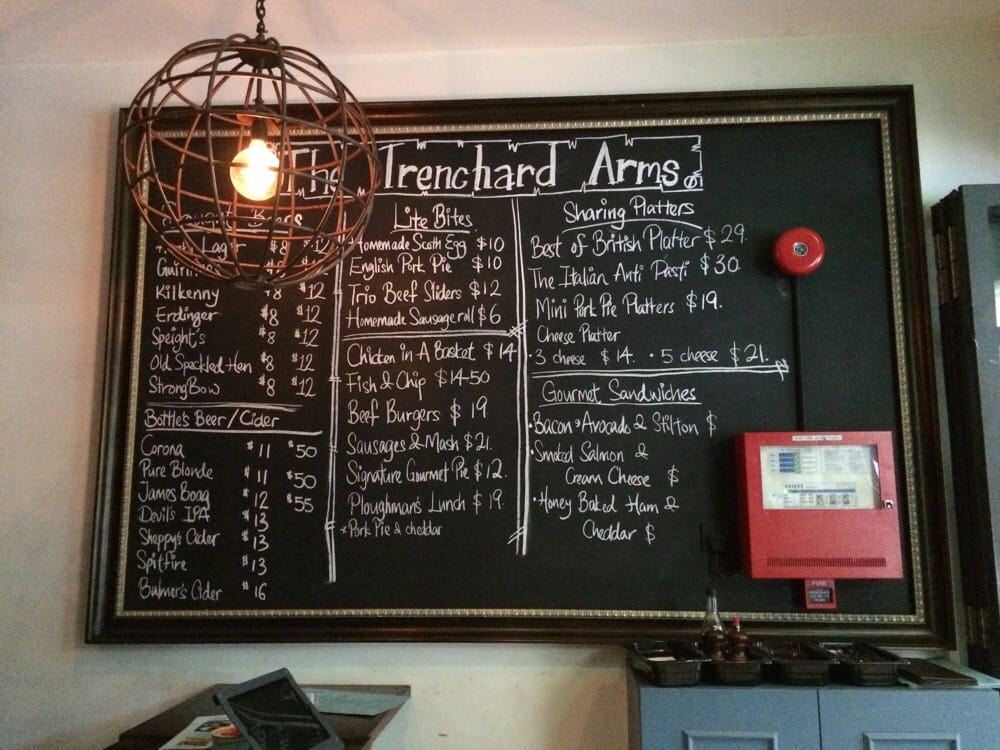 The Trenchard Arms.
Draught Beers
Lager $8 $12
Guinness $8 $12
Kilkenny $8 $12
Erdinger $8 $12
Speight's $8 $12
Old Speckled Hen $8 $12
StrongBow $8 $12
Bottle's Beer/Cider
Corona $11 $50
Pure Blonde $11 $50
James Boag $12 $55
Devil's IPA $13
Sheppy's Cider $13
Spitfire $13
Bulmer's Cider $16
Lite Bites
Homemade Scoth Egg $10
English Pork Pie $10
Trio Beef Sliders $12
Homemade Sausage roll $6
Chicken in A Basket $14
Fish & Chip $14-50
Beef Burgers $19
Sausages & Mash $21.
Signature Gourmet Pie $12.
Ploughman's Lunch $19.
*Pork Pie & cheddar
Sharing Platters
Best of British Platter $29.
The Italian Anti Pasti $30.
Mini Pork Pie Platters $19.
Cheese Platter
• 3 cheese $14. • 5 cheese $21.
Gourmet Sandwiches
• Bacon, Avocado & Stilton $
• Smoked Salmon &
Cream Cheese $
• Honey Baked Ham &
Cheddar $
FUSE